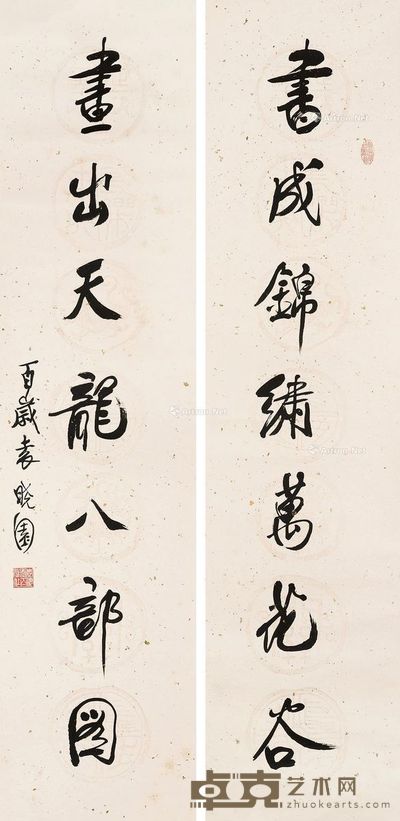 書成錦繡萬花谷
畫出天龍八部圖
百歲袁曉園
卓克艺术网
zhuokearts.com